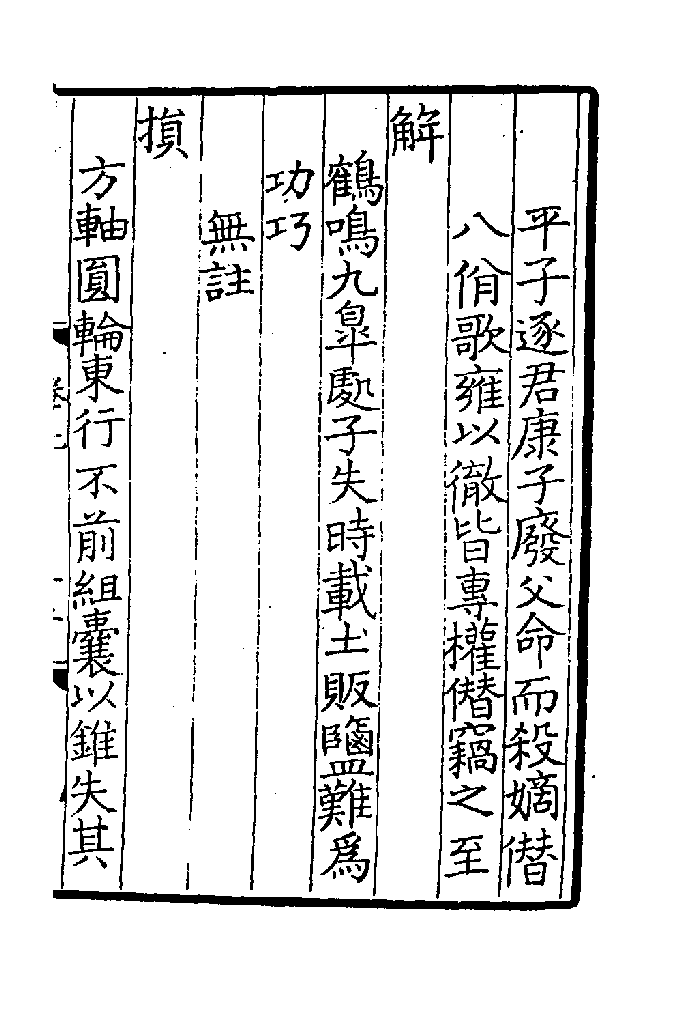 平子逐君康子廢父命而殺嫡僣
八佾歌雍以徹皆專權僣竊之至
解
鶴鳴九臯處子失時載土販鹽難爲
功巧
無註
損
方軸圓輪東行不前組囊以錐失其